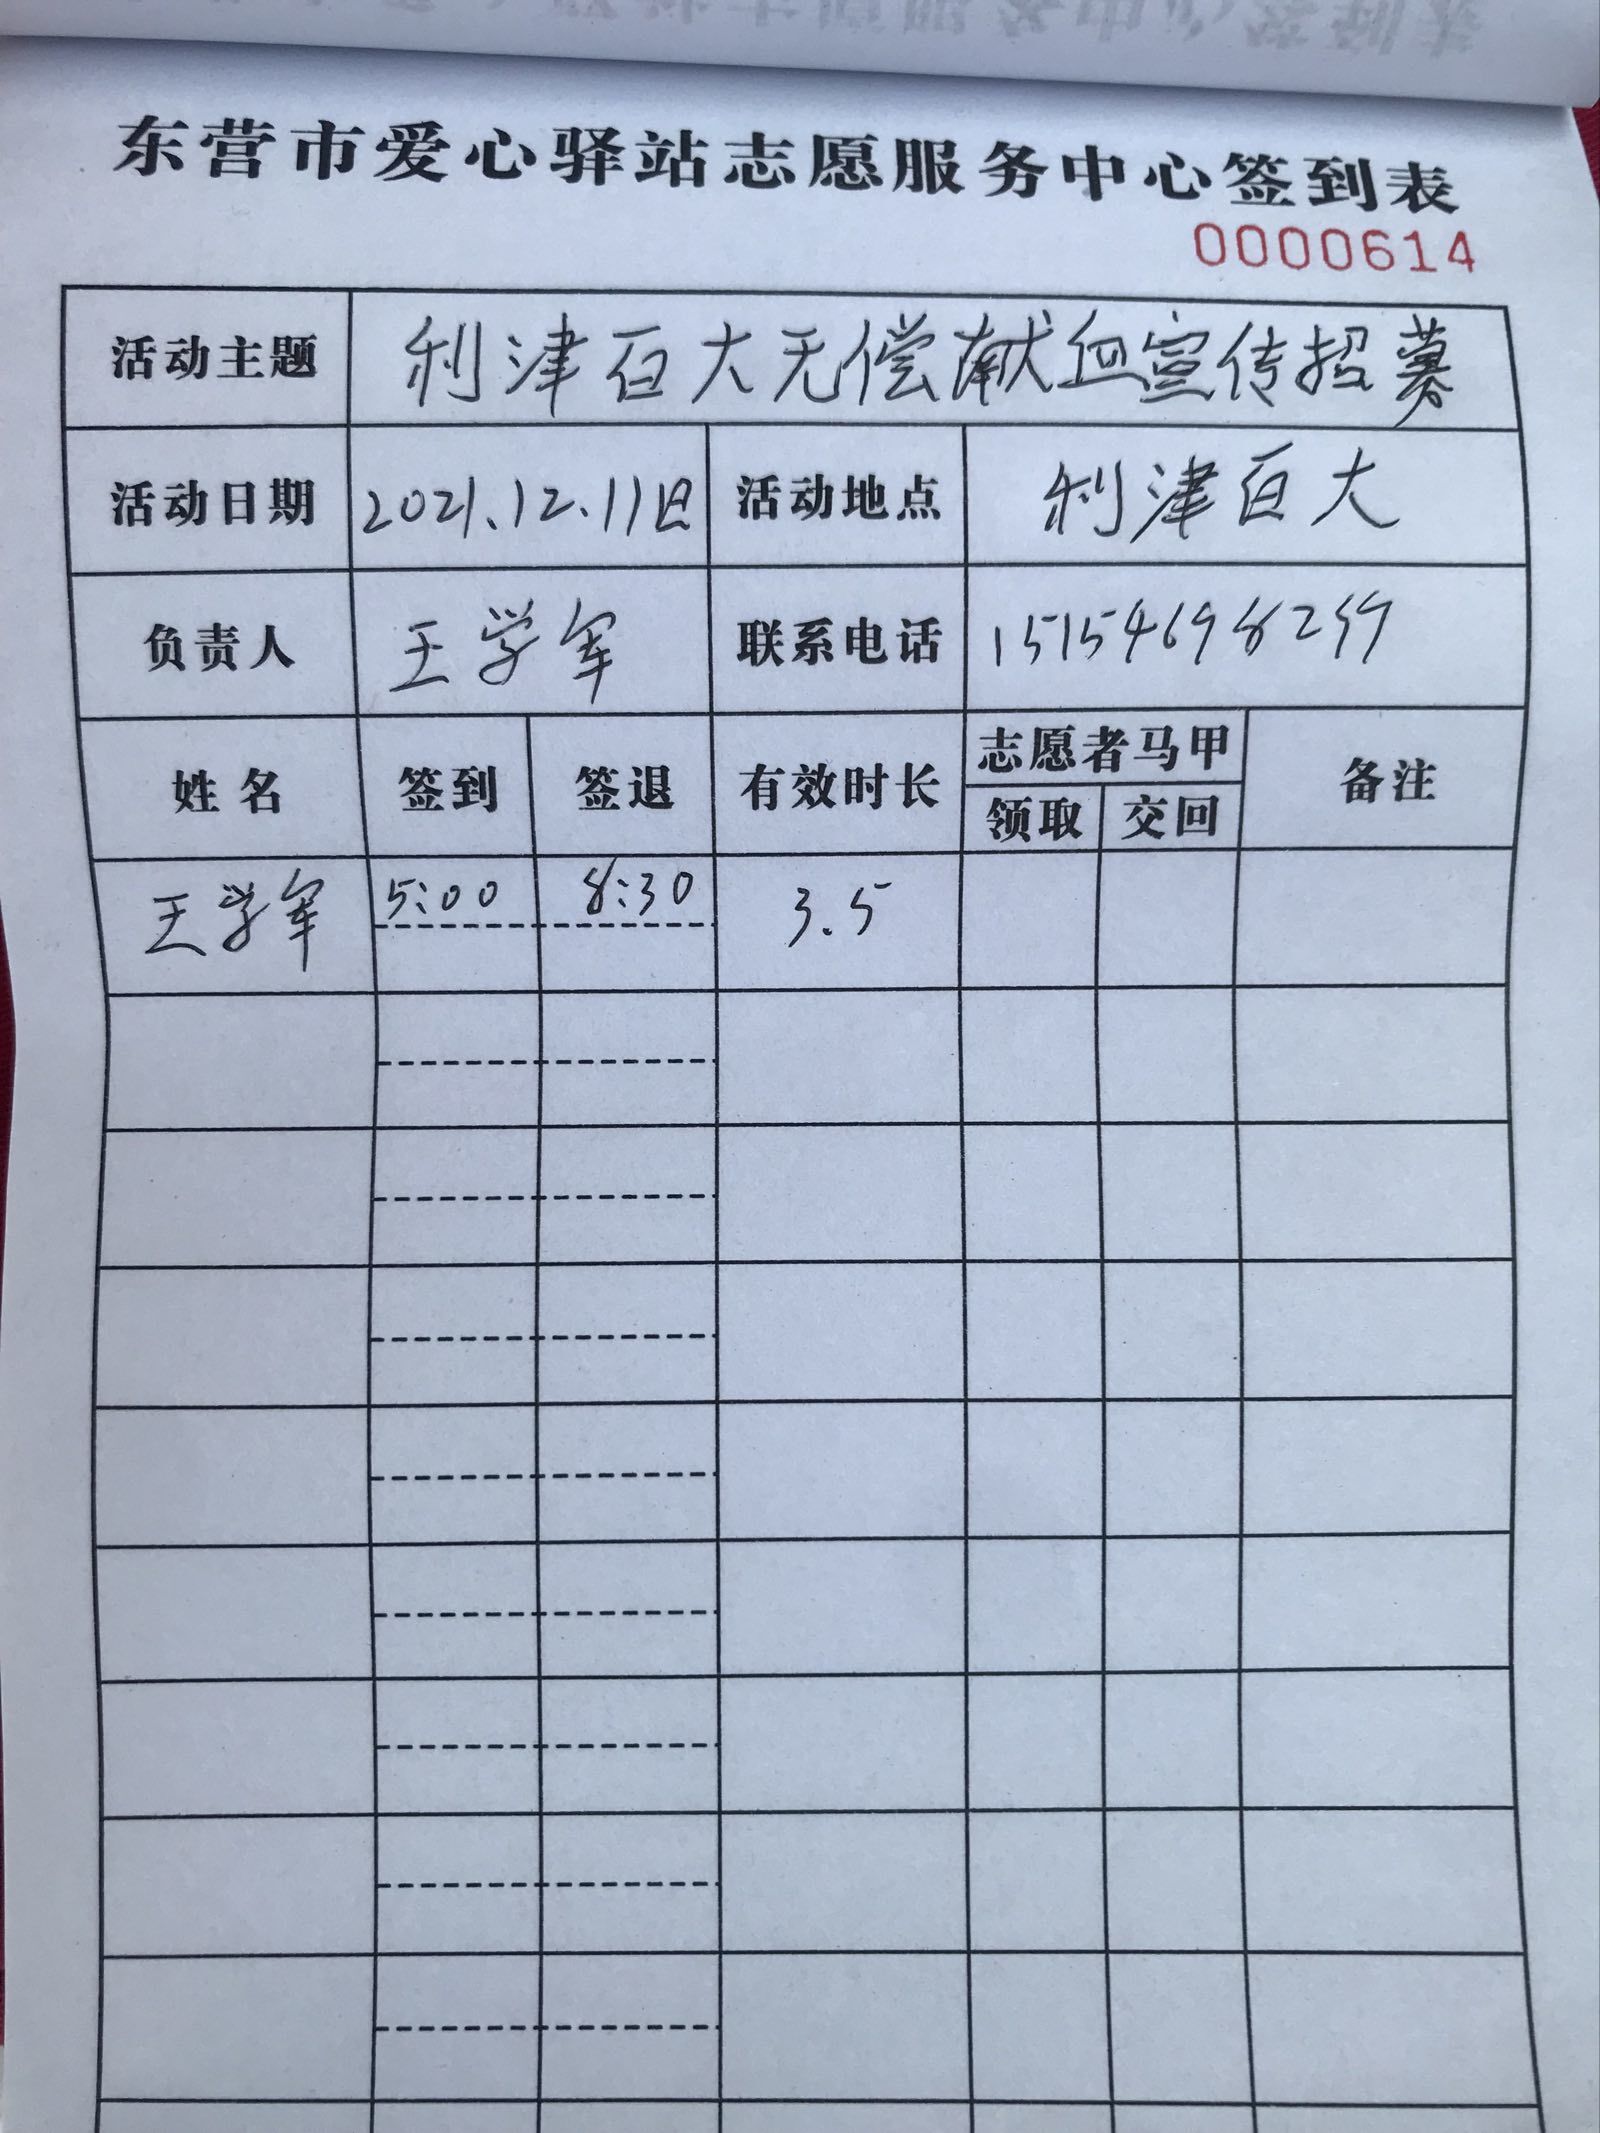 东营市爱心驿站志愿服务中心签到表
0000614
活动主题 利津百大无偿献血宣传招募
活动日期 2021.12.11日 活动地点 利津百大
负责人 王学军 联系电话 15154698259
姓名 签到 签退 有效时长 志愿者马甲 备注
领取 交回
王学军 5:00 8:30 3.5